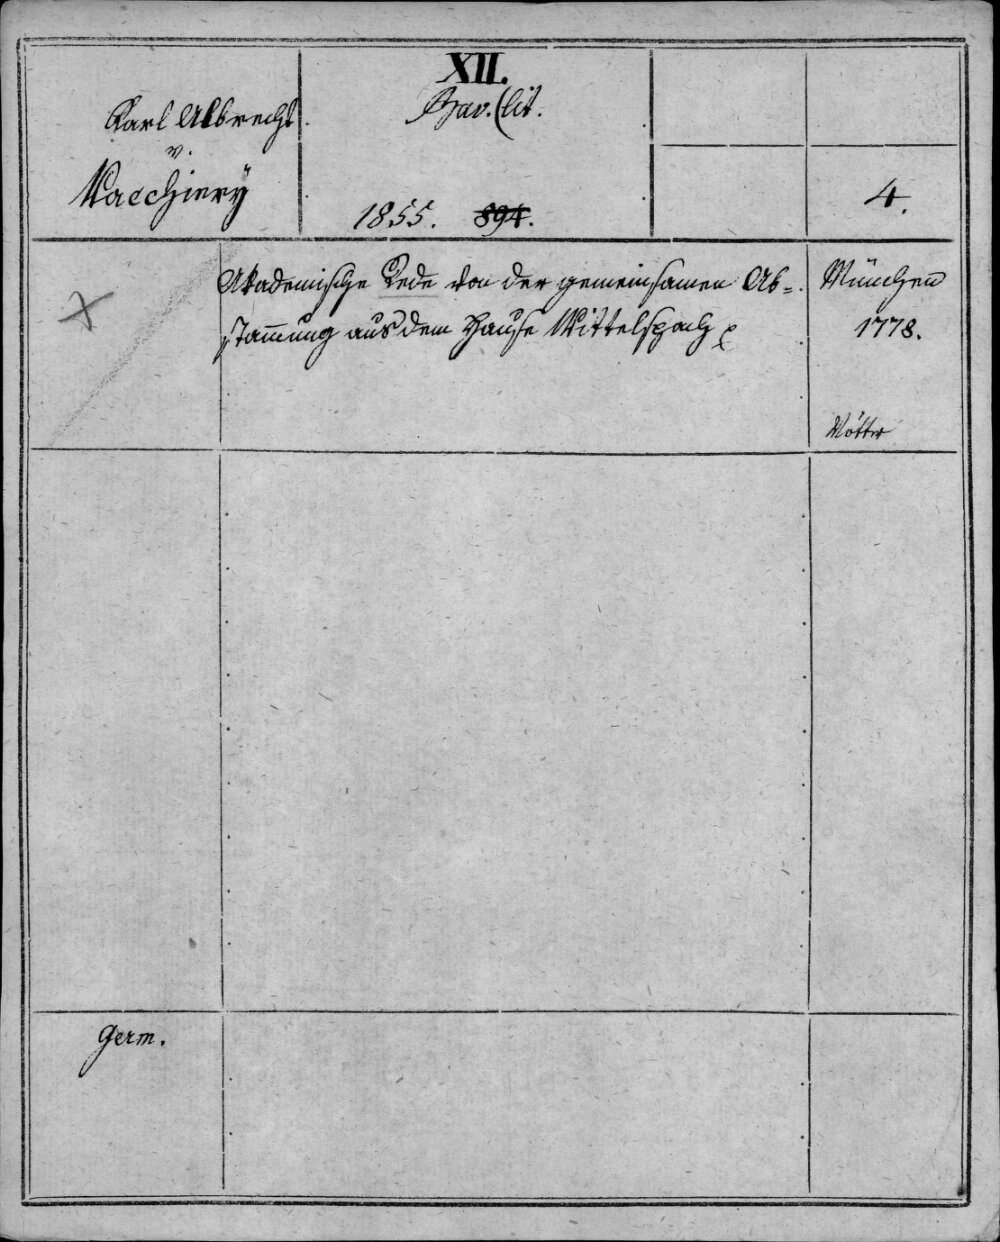 Karl Albrecht
v.
Vacchiery
XII.
Bav. (lit.
1855. 894.
4.
Akademische Rede von der gemeinsamen Ab=
stam̄ung aus dem Hause Wittelspach
München
1778.
Vötter
Germ.